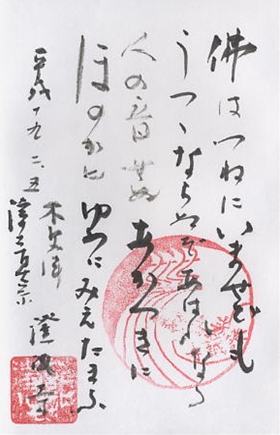 佛はつねにいませども
うつゝならぬぞあはれなる
人の音せぬ あかつきに
ほのかに ゆめにみえたまふ
平成十九、二、五
浄土真宗
寺